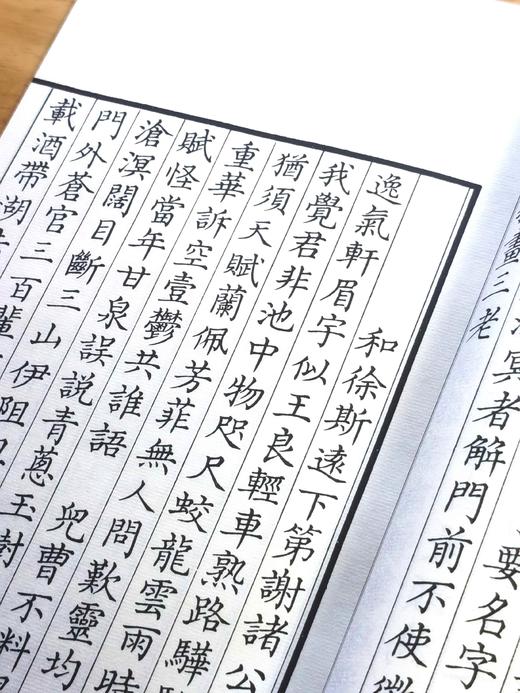 要名字
冥者解門前不使
三老
和徐斯遠下第謝諸公
逸氣軒眉宇似王良輕車熟路驊
我覺君非池中物咫尺蛟龍雲雨時
猶須天賦蘭佩芳菲無人問歎靈均
重華訴空壹鬱共誰語　兒曹不料
賦怪當年甘泉誤說青蔥玉樹
滄溟闊目斷三山伊阻
門外蒼官三百輩
載酒帶湖